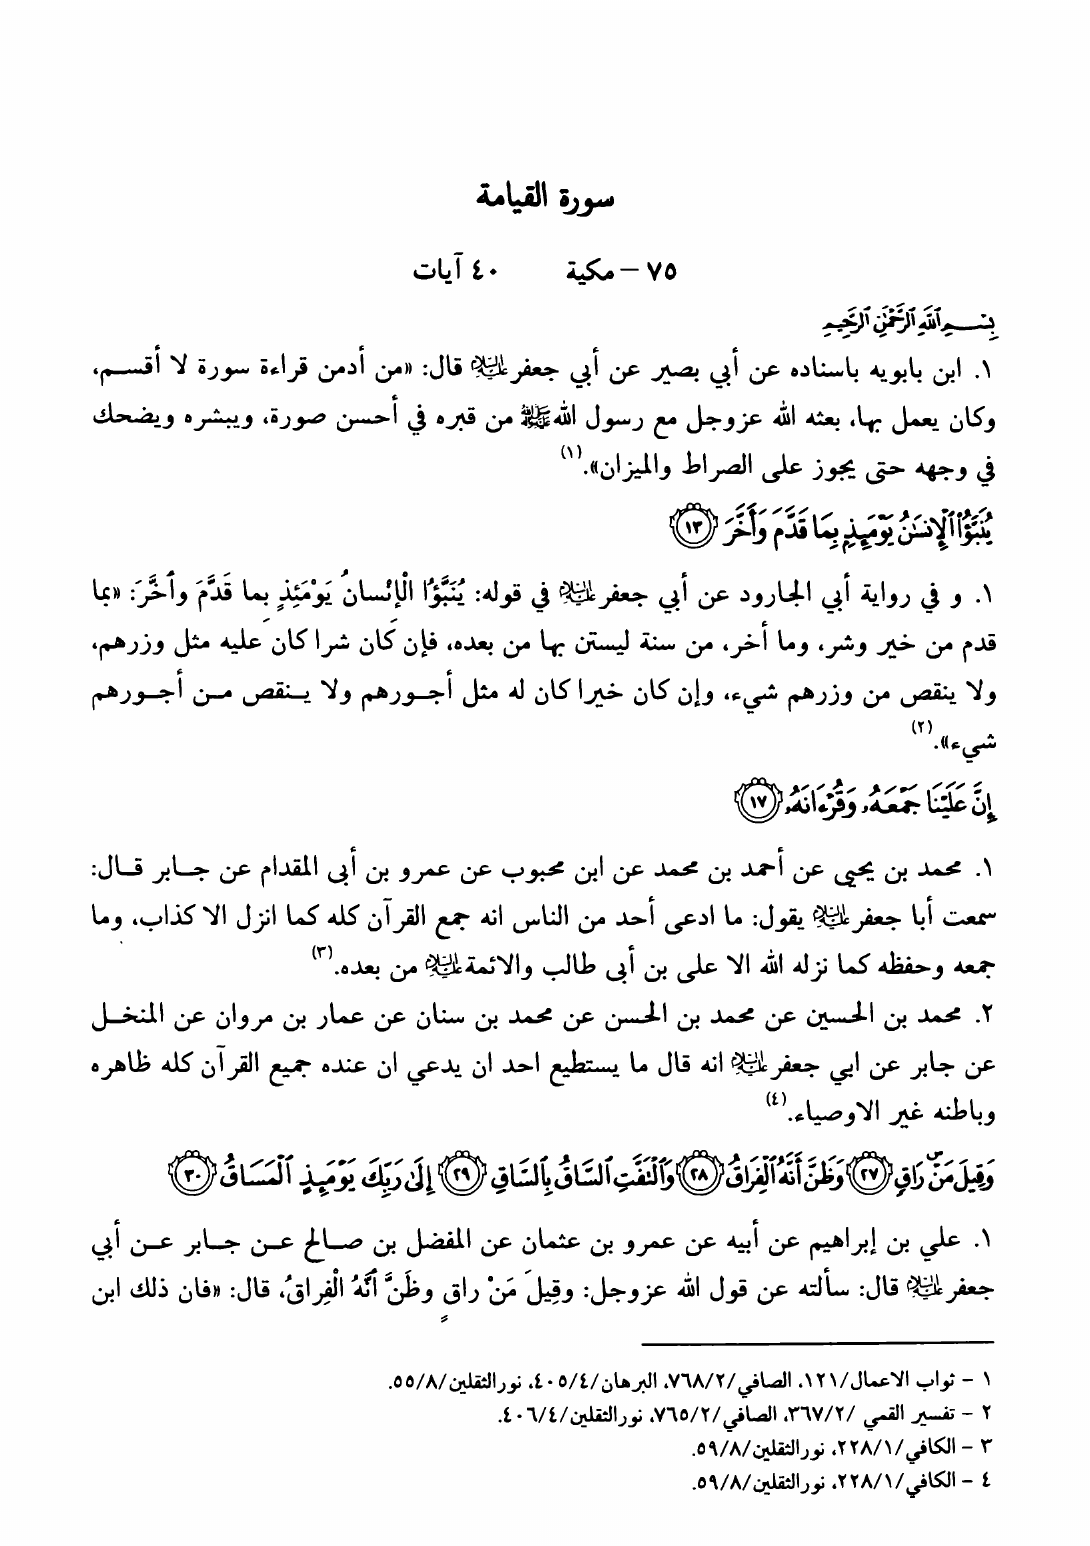 سورة القيامة
٧٥ – مكية ٤٠ آيات
بِسْمِ ٱللَّهِ ٱلرَّحْمَٰنِ ٱلرَّحِيمِ
١. ابن بابويه باسناده عن أبي بصير عن أبي جعفر عليه السلام قال: «من أدمن قراءة سورة لا أقسم،
وكان يعمل بها، بعثه الله عزوجل مع رسول الله ﷺ من قبره في أحسن صورة، ويبشره ويضحك
في وجهه حتى يجوز على الصراط والميزان».(١)
يُنَبَّؤُا۟ ٱلْإِنسَٰنُ يَوْمَئِذٍ بِمَا قَدَّمَ وَأَخَّرَ ﴿١٣﴾
١. و في رواية أبي الجارود عن أبي جعفر عليه السلام في قوله: يُنَبَّؤُا الْإِنْسانُ يَوْمَئِذٍ بِما قَدَّمَ وأَخَّرَ: «بما
قدم من خير وشر، وما أخر، من سنة ليستن بها من بعده، فإن كان شرا كان عليه مثل وزرهم،
ولا ينقص من وزرهم شيء، وإن كان خيرا كان له مثل أجورهم ولا ينقص من أجورهم
شيء».(٢)
إِنَّ عَلَيْنَا جَمْعَهُۥ وَقُرْءَانَهُۥ ﴿١٧﴾
١. محمد بن يحيى عن أحمد بن محمد عن ابن محبوب عن عمرو بن أبى المقدام عن جابر قال:
سمعت أبا جعفر عليه السلام يقول: ما ادعى أحد من الناس انه جمع القرآن كله كما انزل الا كذاب، وما
جمعه وحفظه كما نزله الله الا على بن أبى طالب والائمة عليه السلام من بعده.(٣)
٢. محمد بن الحسين عن محمد بن الحسن عن محمد بن سنان عن عمار بن مروان عن المنخل
عن جابر عن ابي جعفر عليه السلام انه قال ما يستطيع احد ان يدعي ان عنده جميع القرآن كله ظاهره
وباطنه غير الاوصياء.(٤)
وَقِيلَ مَنْ رَاقٍ ﴿٢٧﴾ وَظَنَّ أَنَّهُ ٱلْفِرَاقُ ﴿٢٨﴾ وَٱلْتَفَّتِ ٱلسَّاقُ بِٱلسَّاقِ ﴿٢٩﴾ إِلَىٰ رَبِّكَ يَوْمَئِذٍ ٱلْمَسَاقُ ﴿٣٠﴾
١. علي بن إبراهيم عن أبيه عن عمرو بن عثمان عن المفضل بن صالح عن جابر عن أبي
جعفر عليه السلام قال: سألته عن قول الله عزوجل: وقِيلَ مَنْ راقٍ وظَنَّ أَنَّهُ الْفِراقُ، قال: «فان ذلك ابن
١ – ثواب الاعمال/١٢١، الصافي/٧٦٨/٢، البرهان/٤٠٥/٤، نورالثقلين/٥٥/٨.
٢ – تفسير القمي /٣٦٧/٢، الصافي/٧٦٥/٢، نورالثقلين/٤٠٦/٤.
٣ – الكافي/٢٢٨/١، نورالثقلين/٥٩/٨.
٤ – الكافي/٢٢٨/١، نورالثقلين/٥٩/٨.